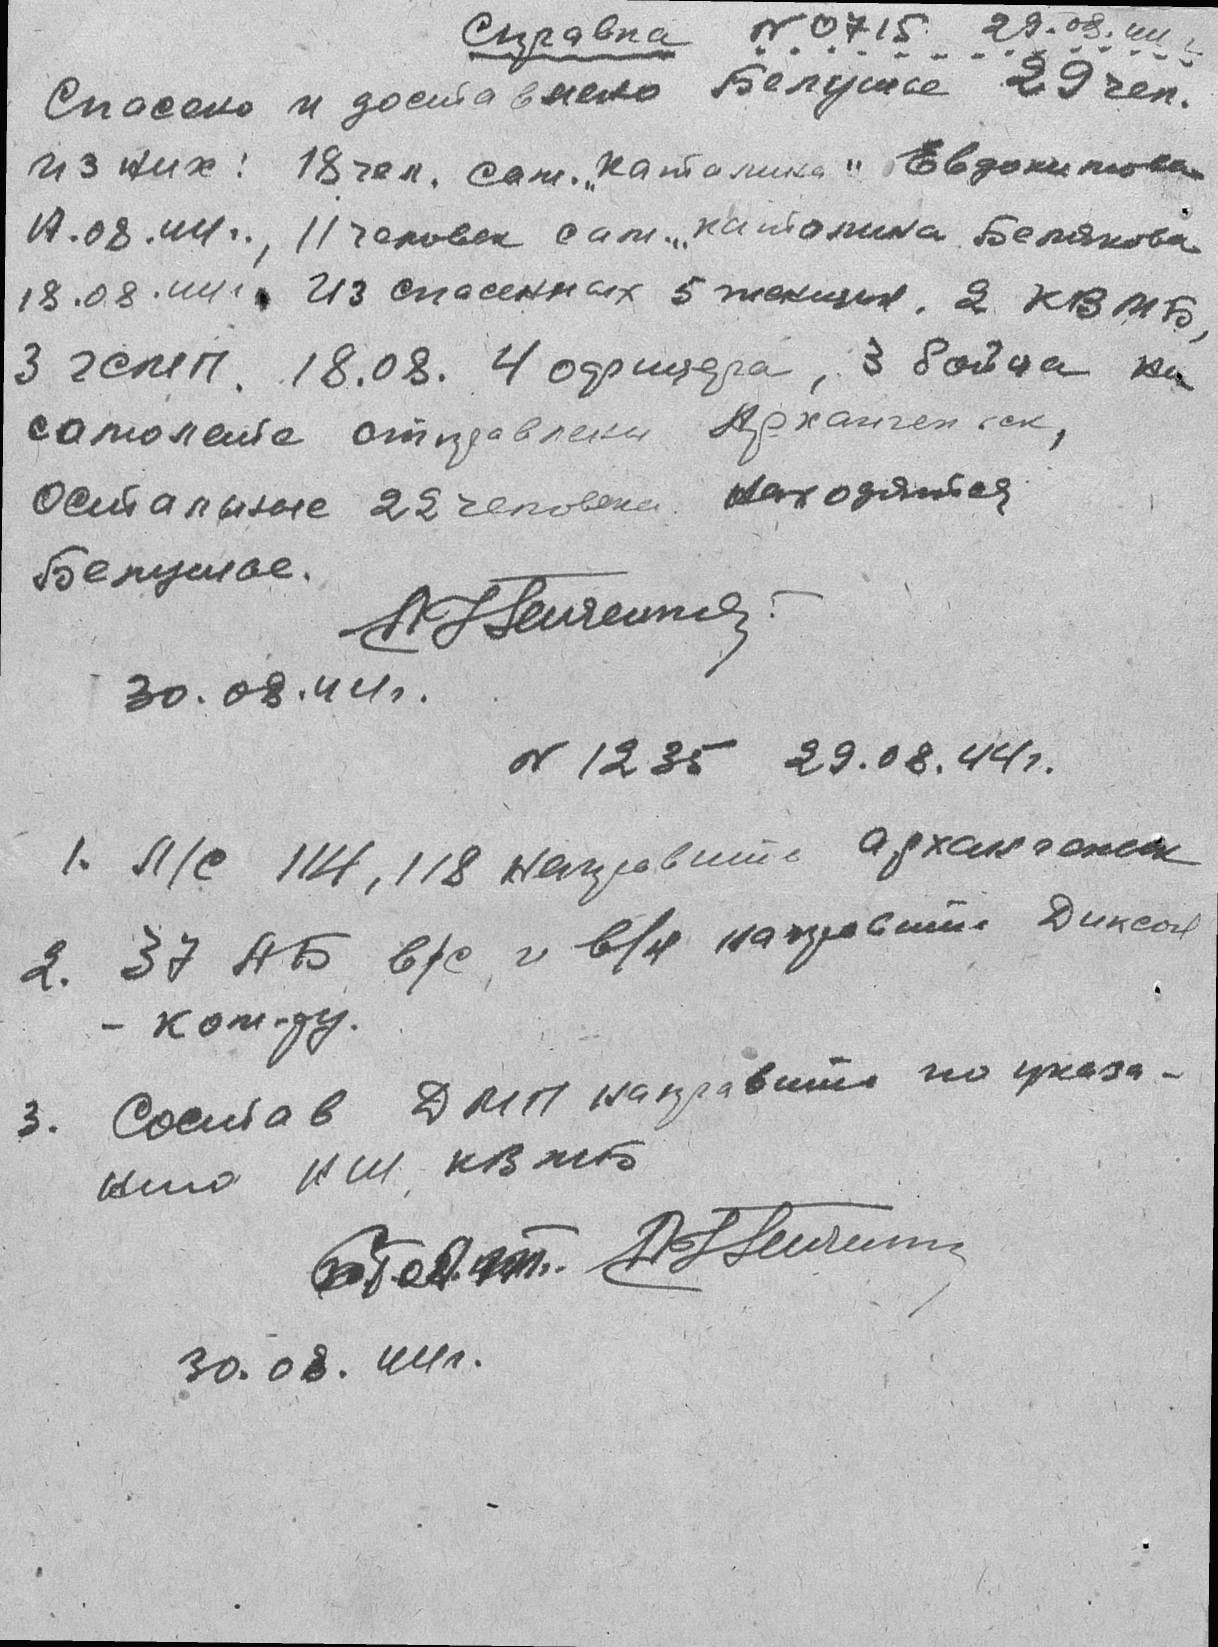 Справка N 0715 29.08.44 г.
Спасено и доставлено Белушье 29 чел.
из них: 18 чел. сам. „Каталина" Евдокимова
17.08.44 г., 11 человек сам. „Каталина Белякова
18.08.44 г. Из спасенных 5 женщин. 2 КВМБ,
3 ГСМП. 18.08. 4 офицера, 3 бойца на
самолете отправлены Архангельск,
Остальные 22 человека находятся
Белушье.
30.08.44 г.
N 1235 29.08.44 г.
1. Л/с 114, 118 направить Архангельск
2. 37 АБ в/с и в/н направить Диксон
- ком-ру.
3. Состав ДМП направить по указа-
нию НШ КВМБ
30.08.44 г.